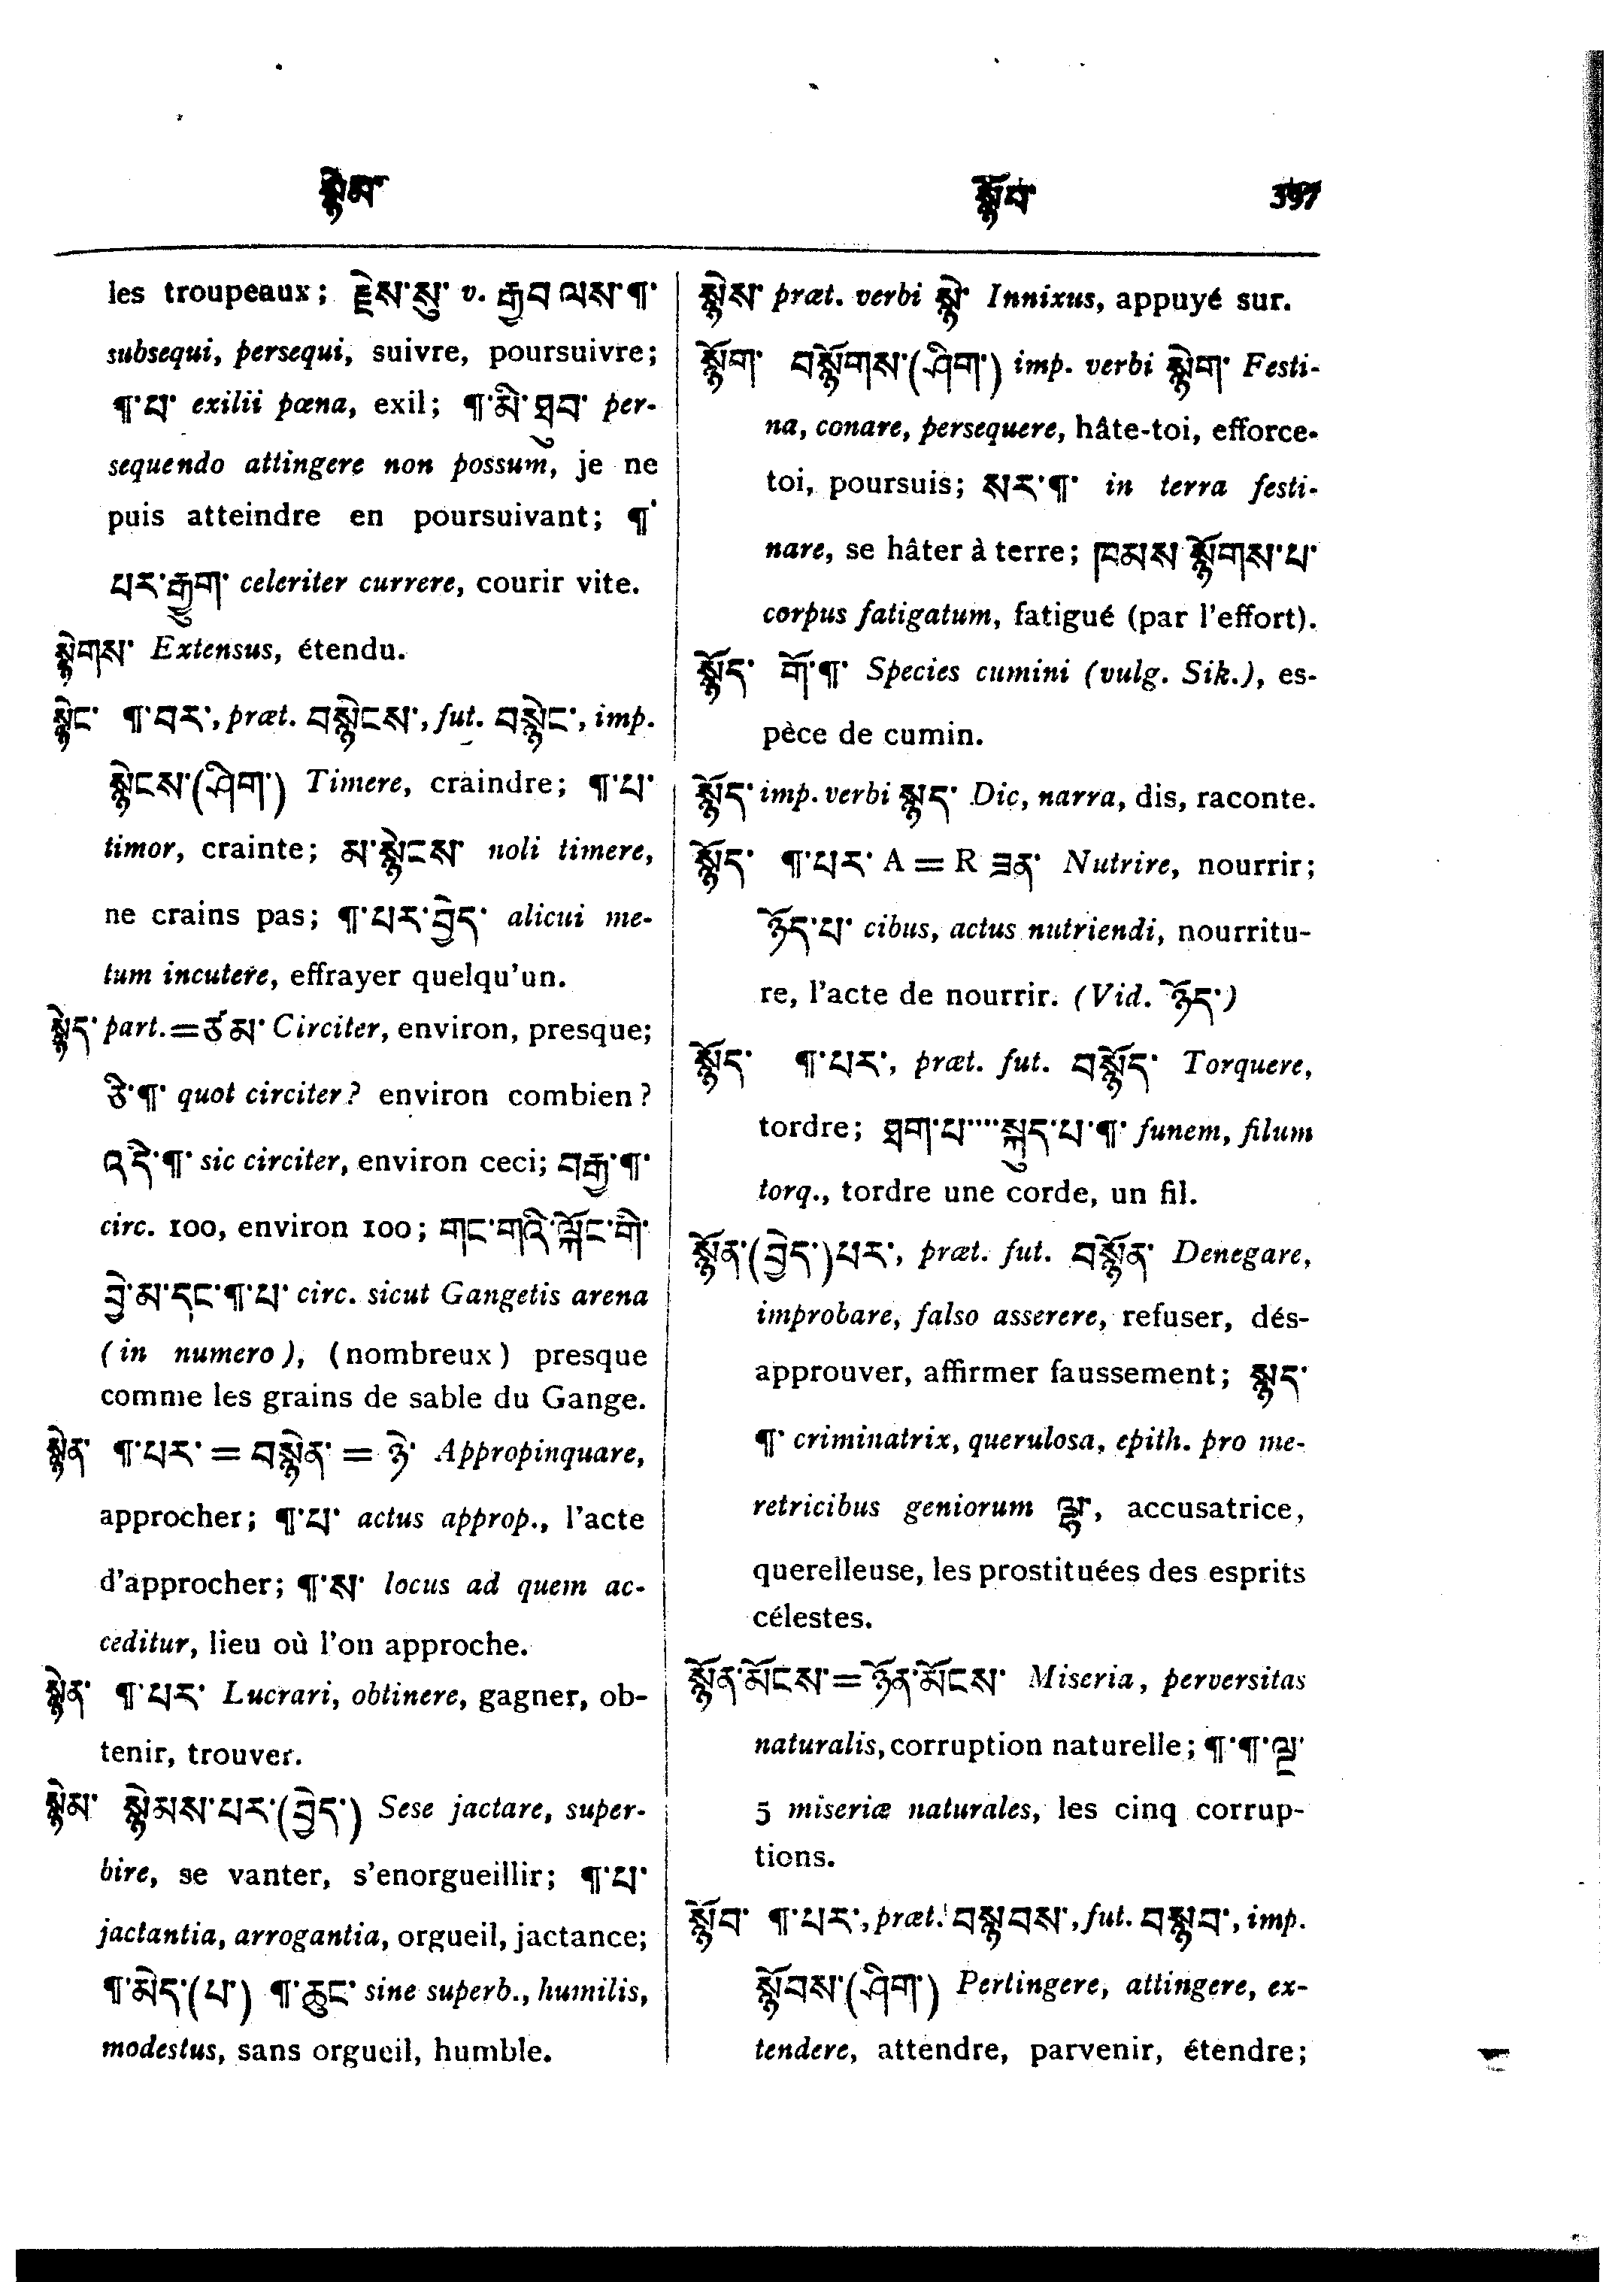 སྙེམ་ སྙོབ་ 397
les troupeaux; རྗེས་སུ་ v. རྒྱབ ལས་¶་
subsequi, persequi, suivre, poursuivre;
¶་པ་ exilii pœna, exil; ¶་མི་ཐུབ་ per-
sequendo attingere non possum, je ne
puis atteindre en poursuivant; ¶་
པར་རྒྱུག་ celeriter currere, courir vite.
སྙེགས་ Extensus, étendu.
སྙེང་ ¶་བར་, præt. བསྙེངས་, fut. བསྙེང་, imp.
སྙེངས་(ཤིག་) Timere, craindre; ¶་པ་
timor, crainte; མ་སྙེངས་ noli timere,
ne crains pas; ¶་པར་བྱེད་ alicui me-
tum incutere, effrayer quelqu'un.
སྙེད་ part.=ཙམ་ Circiter, environ, presque;
ཅི་¶་ quot circiter? environ combien?
འདི་¶་ sic circiter, environ ceci; བརྒྱ་¶་
circ. 100, environ 100; གང་གའི་ཀློང་གི་
བྱེ་མ་དང་¶་པ་ circ. sicut Gangetis arena
(in numero), (nombreux) presque
comme les grains de sable du Gange.
སྙེན་ ¶་པར་ = བསྙེན་ = ཉེ་ Appropinquare,
approcher; ¶་པ་ actus approp., l'acte
d'approcher; ¶་ས་ locus ad quem ac-
ceditur, lieu où l'on approche.
སྙེན་ ¶་པར་ Lucrari, obtinere, gagner, ob-
tenir, trouver.
སྙེམ་ སྙེམས་པར་(བྱེད་) Sese jactare, super-
bire, se vanter, s'enorgueillir; ¶་པ་
jactantia, arrogantia, orgueil, jactance;
¶་མེད་(པ་) ¶་ཆུང་ sine superb., humilis,
modestus, sans orgueil, humble.
སྙེས་ præt. verbi སྙེ་ Innixus, appuyé sur.
སྙོག་ བསྙོགས་(ཤིག་) imp. verbi སྙེག་ Festi-
na, conare, persequere, hâte-toi, efforce-
toi, poursuis; སར་¶་ in terra festi-
nare, se hâter à terre; ཁམས སྙོགས་པ་
corpus fatigatum, fatigué (par l'effort).
སྙོད་ གོ་¶་ Species cumini (vulg. Sik.), es-
pèce de cumin.
སྙོད་ imp. verbi སྙད་ Dic, narra, dis, raconte.
སྙོད་ ¶་པར་ A = R ཟན་ Nutrire, nourrir;
ཉོད་པ་ cibus, actus nutriendi, nourritu-
re, l'acte de nourrir. (Vid. ཉོད་)
སྙོད་ ¶་པར་, præt. fut. བསྙོད་ Torquere,
tordre; ཐག་པ་་་་སྐུད་པ་¶་ funem, filum
torq., tordre une corde, un fil.
སྙོན་(བྱེད་)པར་, præt. fut. བསྙོན་ Denegare,
improbare, falso asserere, refuser, dés-
approuver, affirmer faussement; སྙད་
¶་ criminatrix, querulosa, epith. pro me-
retricibus geniorum ལྷ་, accusatrice,
querelleuse, les prostituées des esprits
célestes.
སྙོན་མོངས་=ཉོན་མོངས་ Miseria, perversitas
naturalis, corruption naturelle; ¶་¶་ལྔ་
5 miseriæ naturales, les cinq corrup-
tions.
སྙོབ་ ¶་པར་, præt. བསྙབས་, fut. བསྙབ་, imp.
སྙོབས་(ཤིག་) Pertingere, attingere, ex-
tendere, attendre, parvenir, étendre;